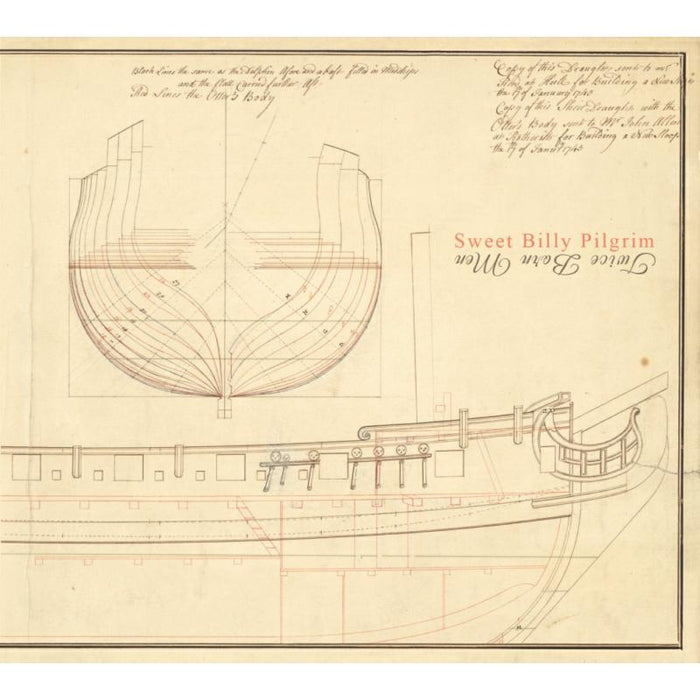 Black Lines the same as the Dolphin Afore and abaft filled in Midships
and the Floor Carried further Aft
Red Lines the Otter's Body
Copy of this Draught sent to mr
at Hull for Building a New
the of January 1740
Copy of this Sheer Draught with the
Otter's Body sent to Mr John Allin
at for Building a New Sloop
the of Janry
Sweet Billy Pilgrim
Twice Born Men